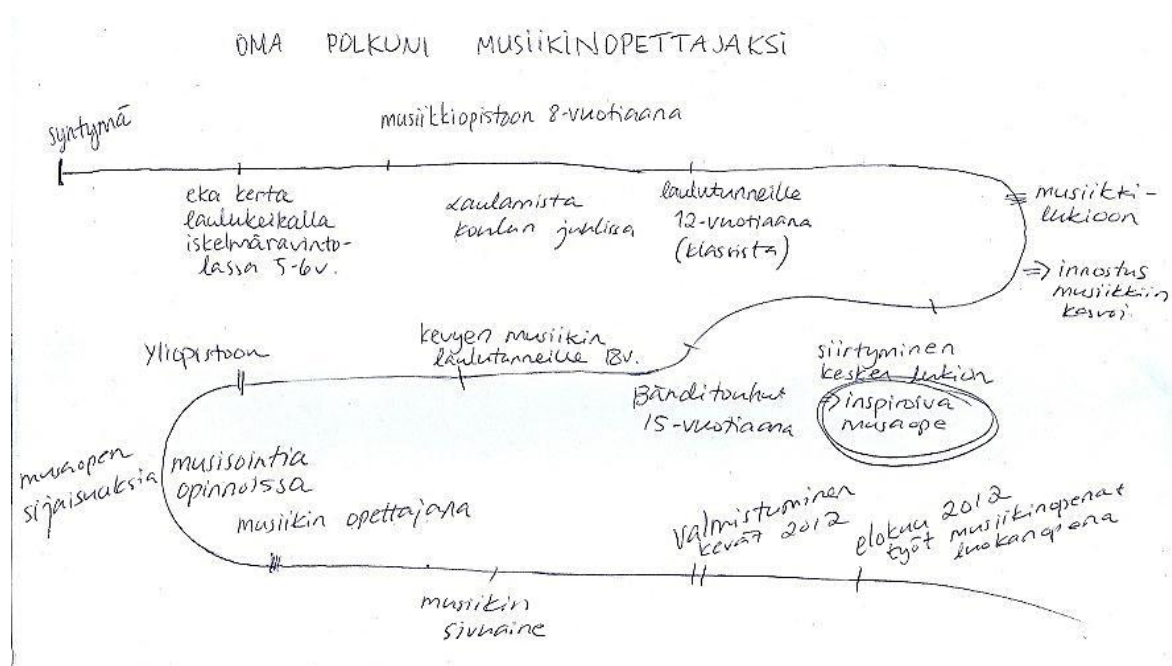 OMA POLKUNI MUSIIKINOPETTAJAKSI
syntymä
musiikkiopistoon 8-vuotiaana
eka kerta
laulukeikalla
iskelmäravinto-
lassa 5-6v.
Laulamista
koulun juhlissa
laulutunneille
12-vuotiaana
(klassista)
=> musiikki-
lukioon
=> innostus
musiikkiin
kasvoi.
siirtyminen
kesken lukion
=> inspiroiva
musaope
Bänditouhut
15-vuotiaana
kevyen musiikin
laulutunneille 18v.
Yliopistoon
musaopen
sijaisuuksia
musisointia
opinnoissa
musiikin opettajana
musiikin
sivuaine
valmistuminen
kevät 2012
elokuu 2012
työt musiikinopena+
luokanopena